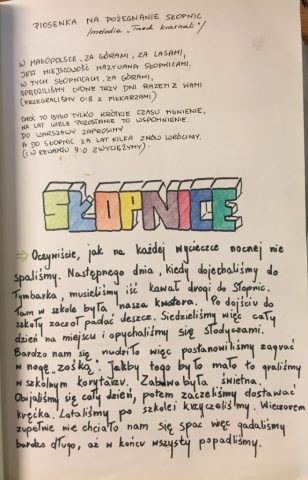 PIOSENKA NA POŻEGNANIE SŁOPNIC
/melodia "Trzech krasnali"/
W MAŁOPOLSCE, ZA GÓRAMI, ZA LASAMI,
JEST MIEJSCOWOŚĆ NAZYWANA SŁOPNICAMI.
W TYCH SŁOPNICACH, ZA GÓRAMI,
SPĘDZILIŚMY CUDNE TRZY DNI RAZEM Z WAMI
(PRZEGRALIŚMY 0:8 Z PIŁKARZAMI)
CHOĆ TO BYŁO TYLKO KRÓTKIE CZASU MGNIENIE,
NA LAT WIELE POZOSTANIE TO WSPOMNIENIE.
DO WARSZAWY ZAPROSIMY
A DO SŁOPNIC ZA LAT KILKA ZNÓW WRÓCIMY.
(I W REWANŻU 9:0 ZWYCIĘŻYMY).
SŁOPNICE
→ Oczywiście, jak na każdej wycieczce nocnej nie
spaliśmy. Następnego dnia, kiedy dojechaliśmy do
Tymbarka, musieliśmy iść kawał drogi do Słopnic.
Tam w szkole była nasza kwatera. Po dojściu do
szkoły zaczoł padać deszcz. Siedzieliśmy więc cały
dzień na miejscu i opychaliśmy się słodyczami.
Bardzo nam się nudziło więc postanowiliśmy zagrać
w nogę „zośką". Jakby tego było mało to graliśmy
w szkolnym korytarzu. Zabawa była świetna.
Obijaliśmy się cały dzień, potem zaczeliśmy dostawać
kręćka. Lataliśmy po szkole i krzyczeliśmy. Wieczorem
zupełnie nie chciało nam się spać więc gadaliśmy
bardzo długo, aż w końcu wszyscy popadliśmy.